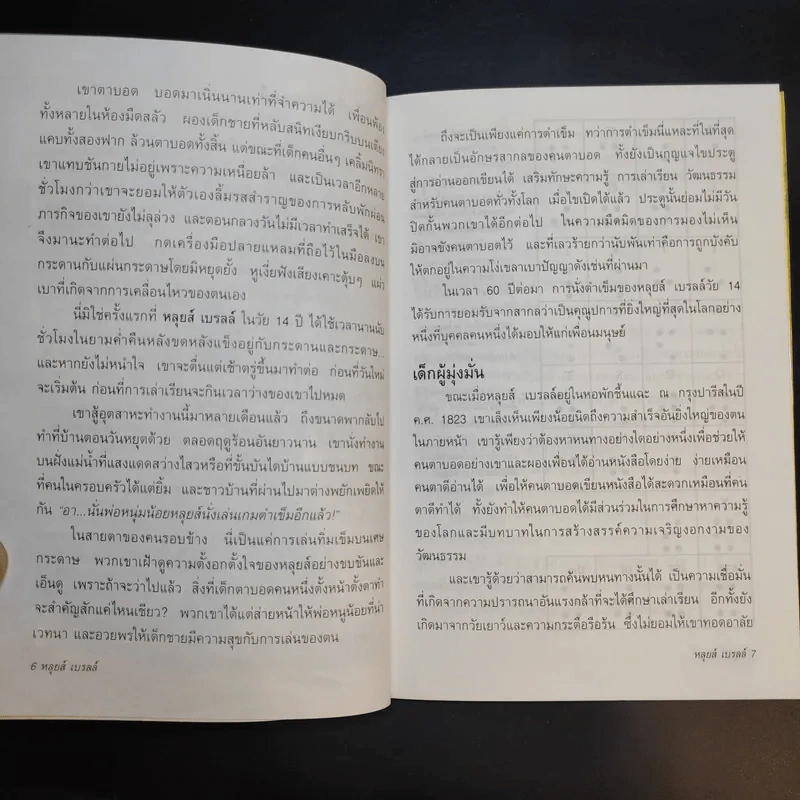 เขาตาบอด บอดมาเนิ่นนานเท่าที่จำความได้ เพื่อนพ้อง
ทั้งหลายในห้องมืดสลัว ผองเด็กชายที่หลับสนิทเงียบกริบบนเตียง
แคบทั้งสองฟาก ล้วนตาบอดทั้งสิ้น แต่ขณะที่เด็กคนอื่นๆ เคลิ้มนิทรา
เขาแทบชันกายไม่อยู่เพราะความเหนื่อยล้า และเป็นเวลาอีกหลาย
ชั่วโมงกว่าเขาจะยอมให้ตัวเองลิ้มรสสำราญของการหลับพักผ่อน
ภารกิจของเขายังไม่ลุล่วง และตอนกลางวันไม่มีเวลาทำเสร็จได้ เขา
จึงมานะทำต่อไป กดเครื่องมือปลายแหลมที่ถือไว้ในมือลงบน
กระดานกับแผ่นกระดาษโดยมิหยุดยั้ง หูเงี่ยฟังเสียงเคาะตุ้บๆ แผ่ว
เบาที่เกิดจากการเคลื่อนไหวของตนเอง
นี่มิใช่ครั้งแรกที่ หลุยส์ เบรลล์ ในวัย 14 ปี ได้ใช้เวลานานนับ
ชั่วโมงในยามค่ำคืนหลังขดหลังแข็งอยู่กับกระดานและกระดาษ...
และหากยังไม่หนำใจ เขาจะตื่นแต่เช้าตรู่ขึ้นมาทำต่อ ก่อนที่วันใหม่
จะเริ่มต้น ก่อนที่การเล่าเรียนจะกินเวลาว่างของเขาไปหมด
เขาสู้อุตสาหะทำงานนี้มาหลายเดือนแล้ว ถึงขนาดพากลับไป
ทำที่บ้านตอนวันหยุดด้วย ตลอดฤดูร้อนอันยาวนาน เขานั่งทำงาน
บนฝั่งแม่น้ำที่แสงแดดสว่างไสวหรือที่ขั้นบันไดบ้านแบบชนบท ขณะ
ที่คนในครอบครัวได้แต่ยิ้ม และชาวบ้านที่ผ่านไปมาต่างพยักเพยิดให้
กัน "อา...นั่นพ่อหนุ่มน้อยหลุยส์นั่งเล่นเกมตำเข็มอีกแล้ว!"
ในสายตาของคนรอบข้าง นี่เป็นแค่การเล่นทิ่มเข็มบนเศษ
กระดาษ พวกเขาเฝ้าดูความตั้งอกตั้งใจของหลุยส์อย่างขบขันและ
เอ็นดู เพราะถ้าจะว่าไปแล้ว สิ่งที่เด็กตาบอดคนหนึ่งตั้งหน้าตั้งตาทำ
จะสำคัญสักแค่ไหนเชียว? พวกเขาได้แต่ส่ายหน้าให้พ่อหนูน้อยที่น่า
เวทนา และอวยพรให้เด็กชายมีความสุขกับการเล่นของตน
6 หลุยส์ เบรลล์
ถึงจะเป็นเพียงแค่การตำเข็ม ทว่าการตำเข็มนี่แหละที่ในที่สุด
ได้กลายเป็นอักษรสากลของคนตาบอด ทั้งยังเป็นกุญแจไขประตู
สู่การอ่านออกเขียนได้ เสริมทักษะความรู้ การเล่าเรียน วัฒนธรรม
สำหรับคนตาบอดทั่วทั้งโลก เมื่อไขเปิดได้แล้ว ประตูนั้นย่อมไม่มีวัน
ปิดกั้นพวกเขาได้อีกต่อไป ในความมืดมิดของการมองไม่เห็น
มิอาจขังคนตาบอดไว้ และที่เลวร้ายกว่านับพันเท่าคือการถูกบังคับ
ให้ตกอยู่ในความโง่เขลาเบาปัญญาดังเช่นที่ผ่านมา
ในเวลา 60 ปีต่อมา การนั่งตำเข็มของหลุยส์ เบรลล์วัย 14
ได้รับการยอมรับจากสากลว่าเป็นคุณูปการที่ยิ่งใหญ่ที่สุดในโลกอย่าง
หนึ่งที่บุคคลคนหนึ่งได้มอบให้แก่เพื่อนมนุษย์
เด็กผู้มุ่งมั่น
ขณะเมื่อหลุยส์ เบรลล์อยู่ในหอพักชื้นแฉะ ณ กรุงปารีสในปี
ค.ศ. 1823 เขาเล็งเห็นเพียงน้อยนิดถึงความสำเร็จอันยิ่งใหญ่ของตน
ในภายหน้า เขารู้เพียงว่าต้องหาหนทางอย่างใดอย่างหนึ่งเพื่อช่วยให้
คนตาบอดอย่างเขาและผองเพื่อนได้อ่านหนังสือโดยง่าย ง่ายเหมือน
คนตาดีอ่านได้ เพื่อให้คนตาบอดเขียนหนังสือได้สะดวกเหมือนที่คน
ตาดีทำได้ ทั้งยังทำให้คนตาบอดได้มีส่วนร่วมในการศึกษาหาความรู้
ของโลกและมีบทบาทในการสร้างสรรค์ความเจริญงอกงามของ
วัฒนธรรม
และเขารู้ด้วยว่าสามารถค้นพบหนทางนั้นได้ เป็นความเชื่อมั่น
ที่เกิดจากความปรารถนาอันแรงกล้าที่จะได้ศึกษาเล่าเรียน อีกทั้งยัง
เกิดมาจากวัยเยาว์และความกระตือรือร้น ซึ่งไม่ยอมให้เขาทอดอาลัย
หลุยส์ เบรลล์ 7